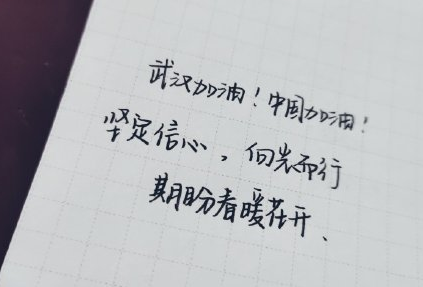 武汉加油！中国加油！
坚定信心，向光而行
期盼着暖花开、